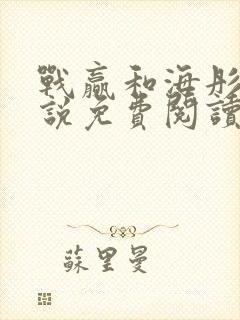 戰贏和海彤
說免費閱讀
蘇里曼